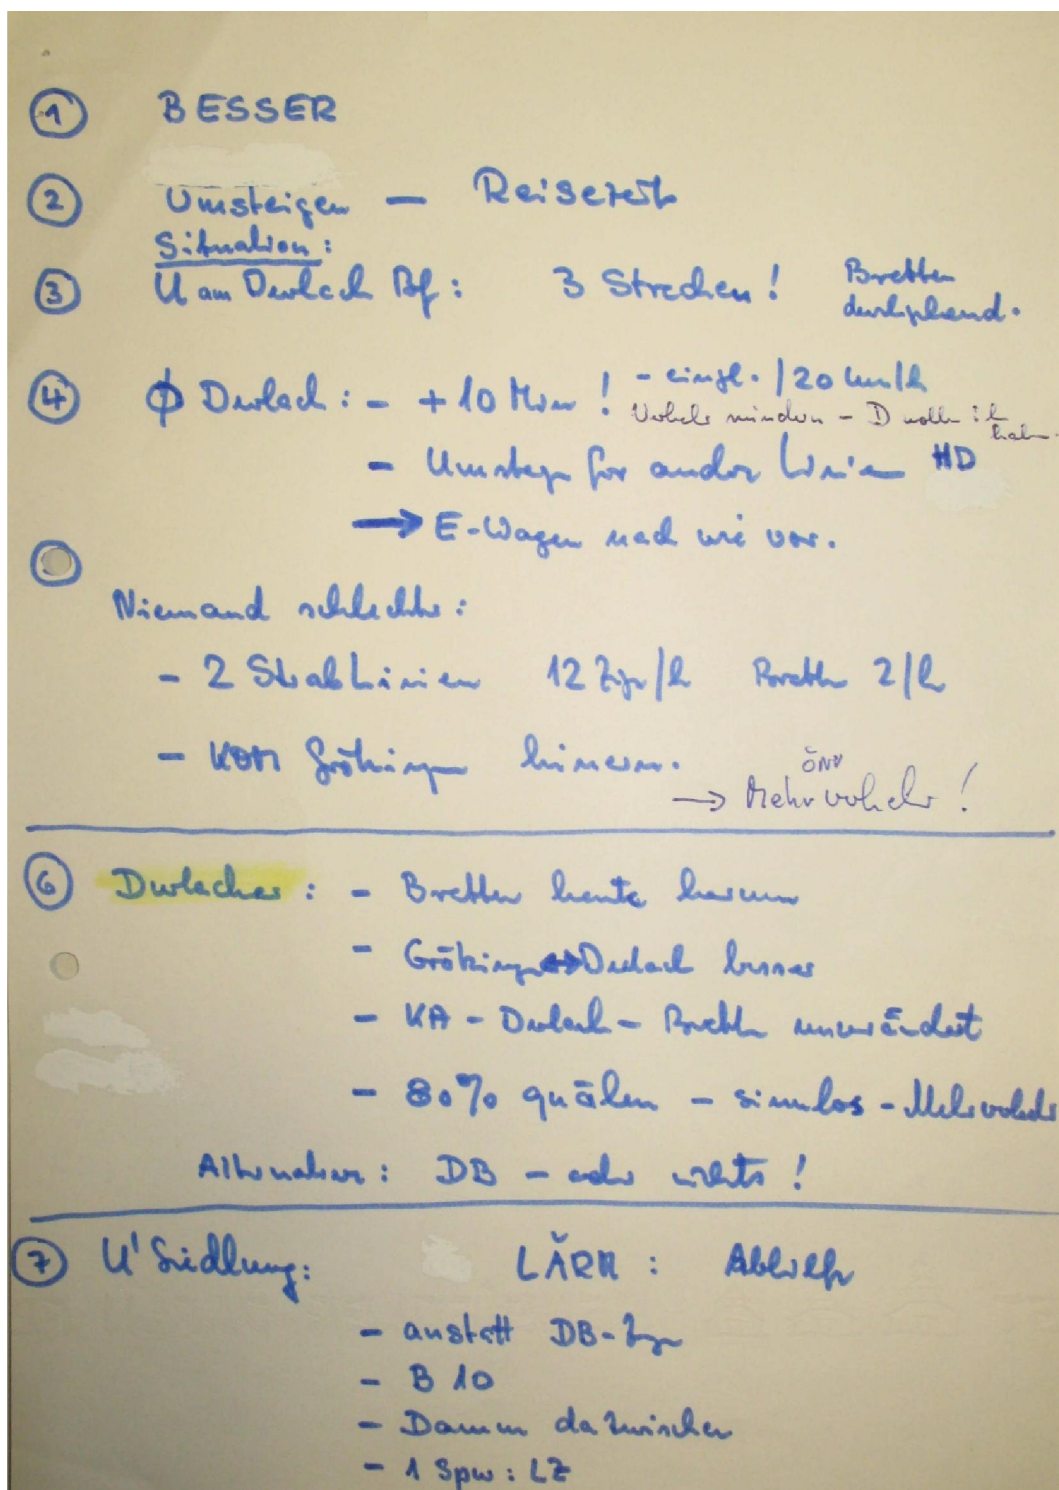 1 BESSER
2 Umsteigen — Reisezeit
Situation:
3 U am Durlach Bf: 3 Strecken! Bretten
durchgehend.
4 Ф Durlach: - +10 Min! - eingl. /20 km/h
Verkehr mindern - D wollen
haben.
- Umsteigen für andere Linien HD
→ E-Wagen nach wie vor.
Niemand schlechter:
- 2 Strab Linien 12 Züge/h Bretten 2/h
- KOM Grötzingen
ÖNV
→ Mehrverkehr!
6 Durlacher: - Bretten heute herum
- Grötzingen ↔ Durlach besser
- KA - Durlach - Bretten unverändert
- 80% quälen - sinnlos - Mehrverkehr
Alternative: DB - oder nichts!
7 U'Siedlung: LÄRM: Abhilfe
- anstatt DB-Züge
- B 10
- Damm dazwischen
- 1 Spw: LZ